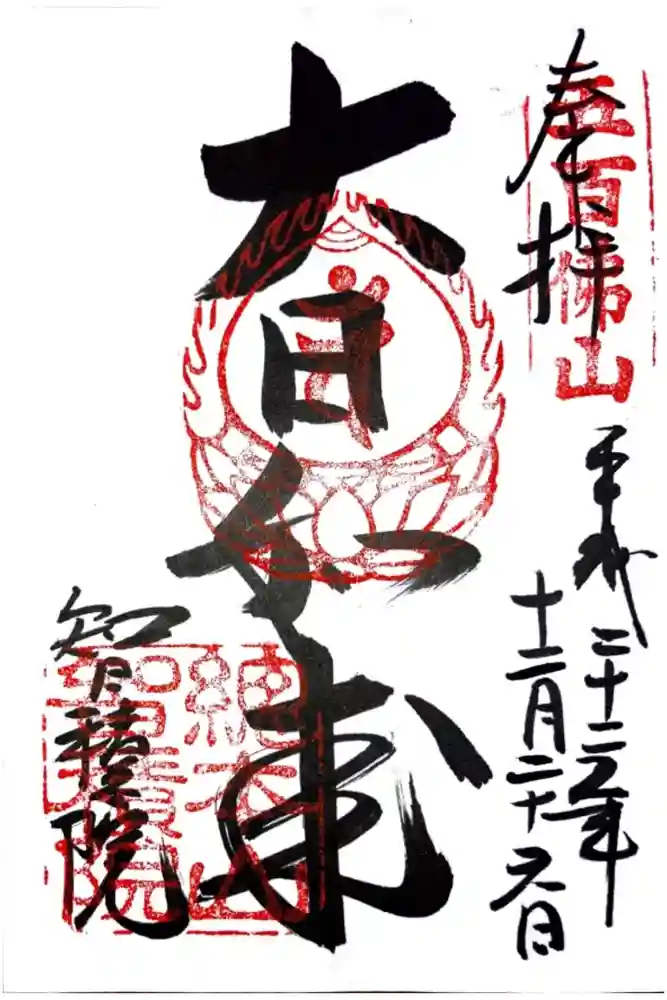 奉拝
五百佛山
平成二十二年
十二月二十六日
大日如来
智積院
總本山
智積院